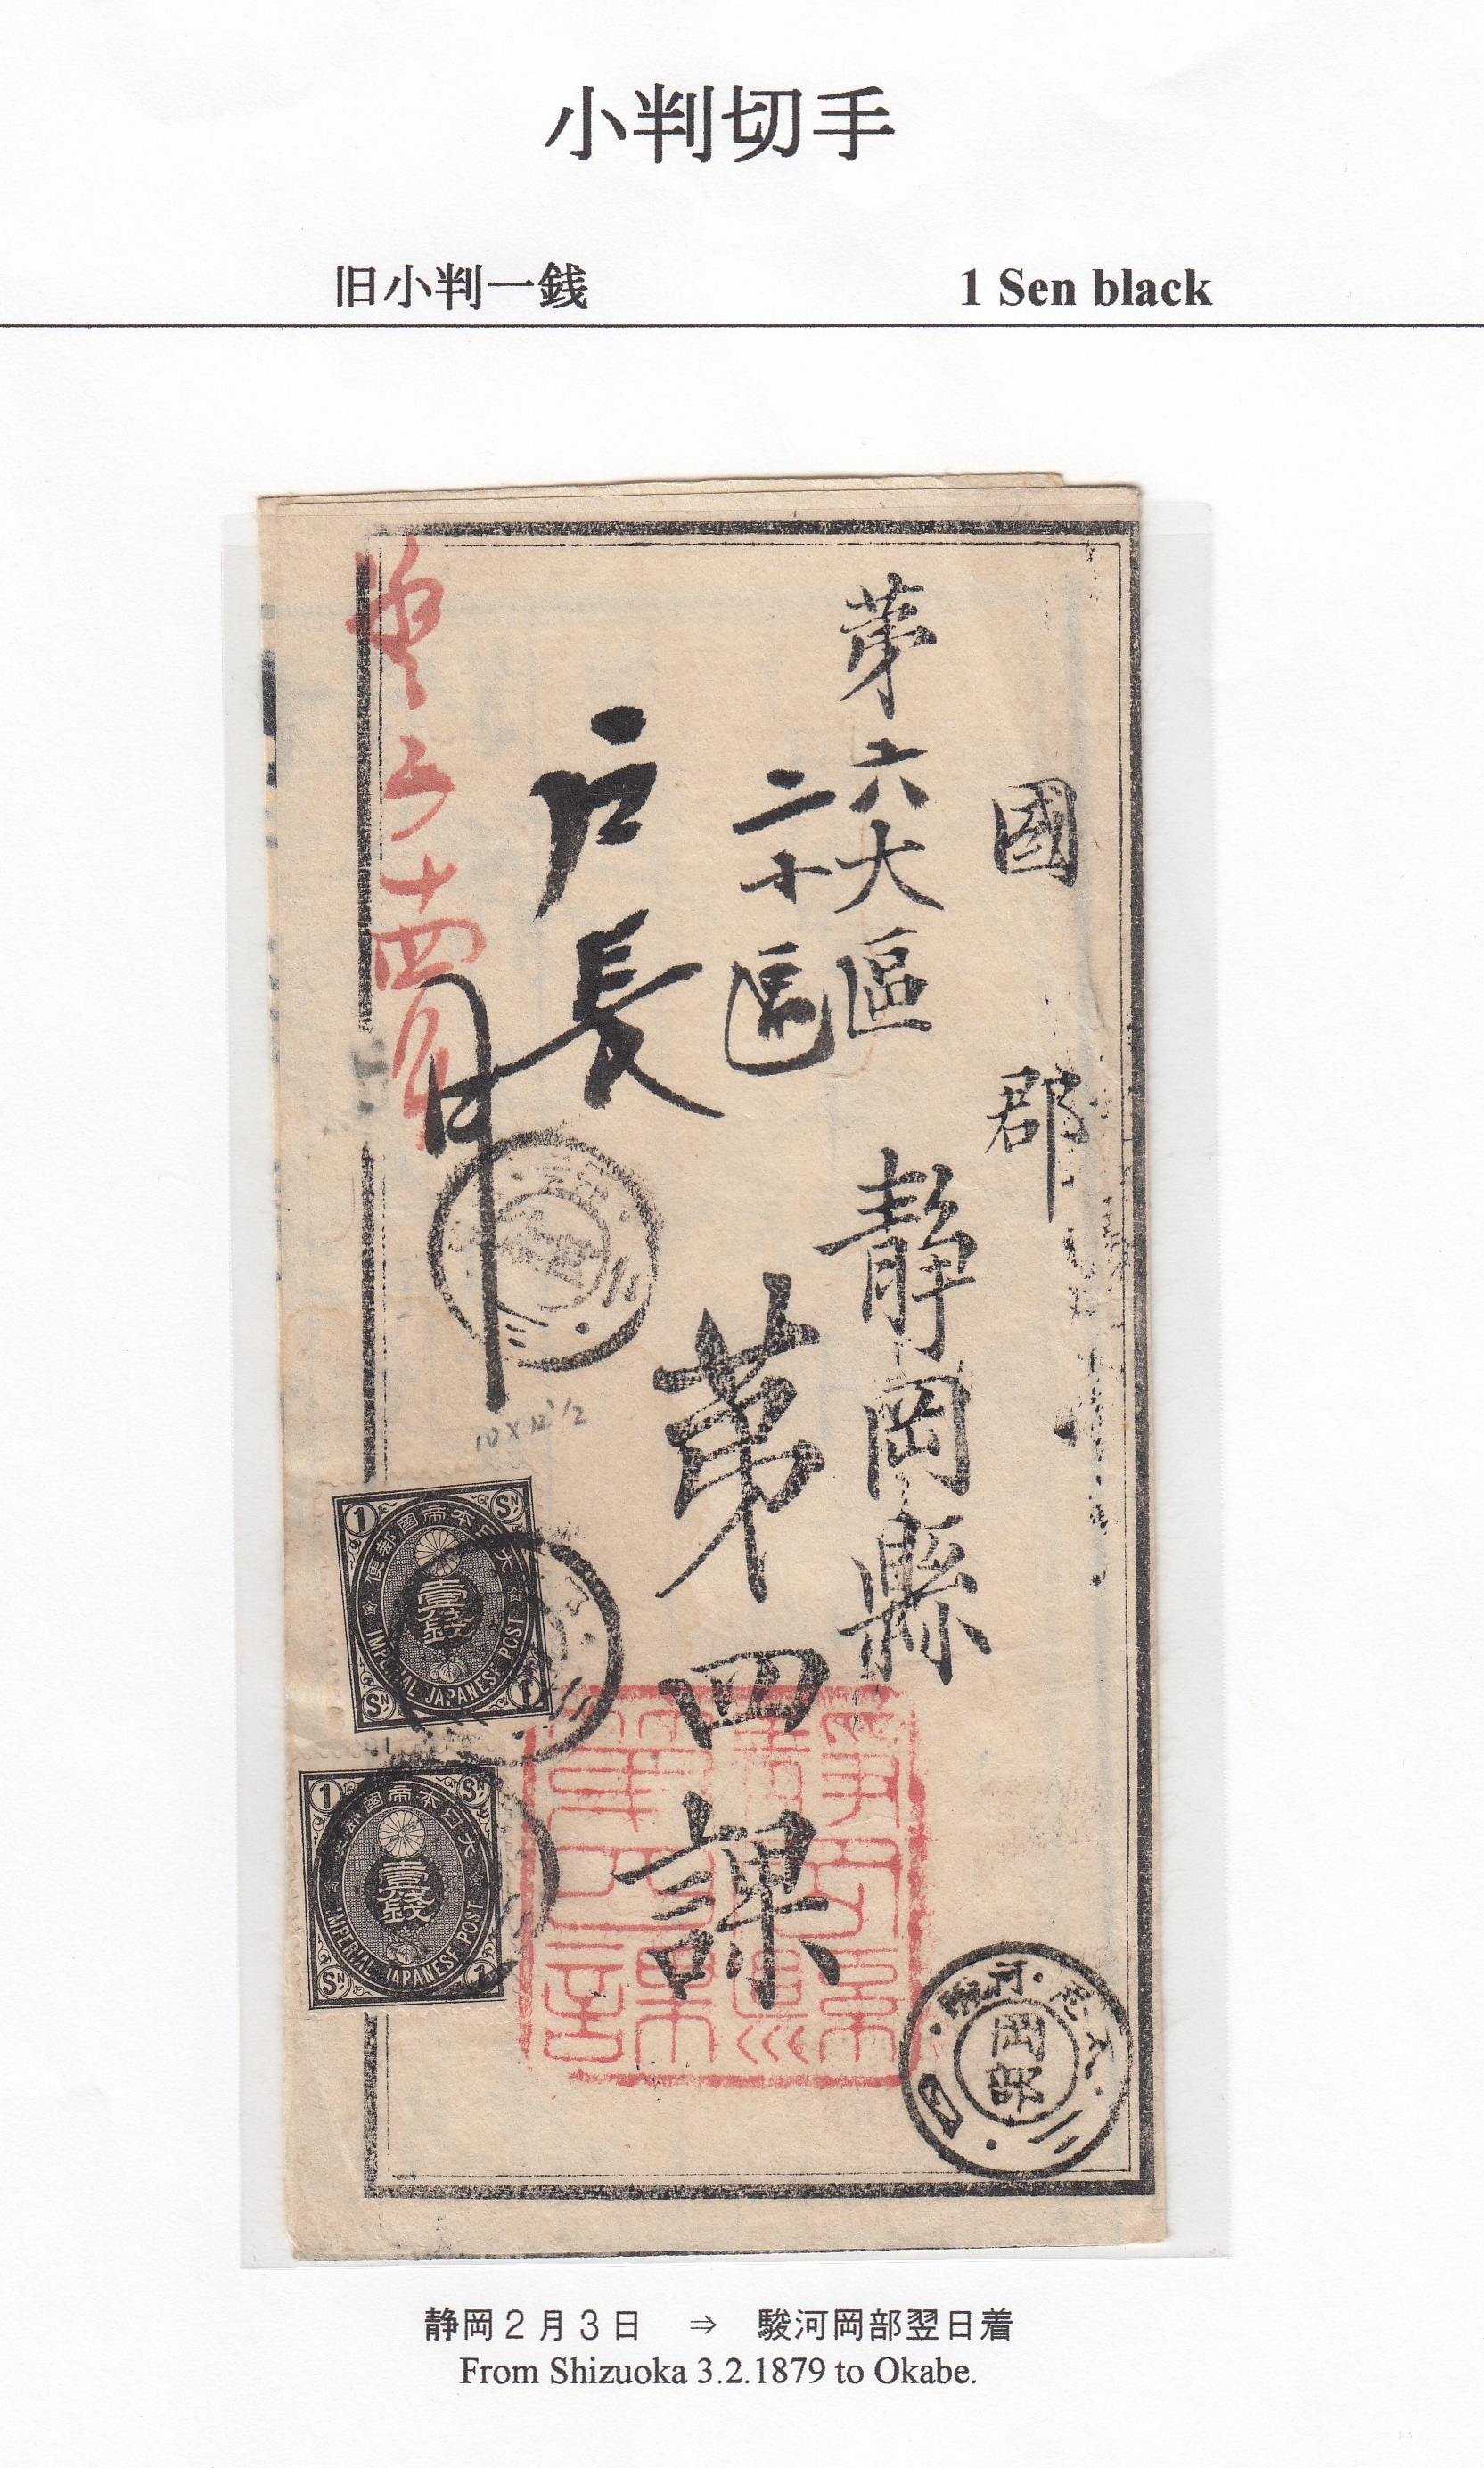 小判切手
旧小判一銭
1 Sen black
國
郡
第六大區
二小區
戸長
静岡縣
第四課
10 X 12 1/2
1 SN
大日本帝國郵便
壹錢
IMPERIAL JAPANESE POST
SN 1
1 SN
大日本帝國郵便
壹錢
IMPERIAL JAPANESE POST
SN 1
岡部
静岡２月３日　⇒　駿河岡部翌日着
From Shizuoka 3.2.1879 to Okabe.